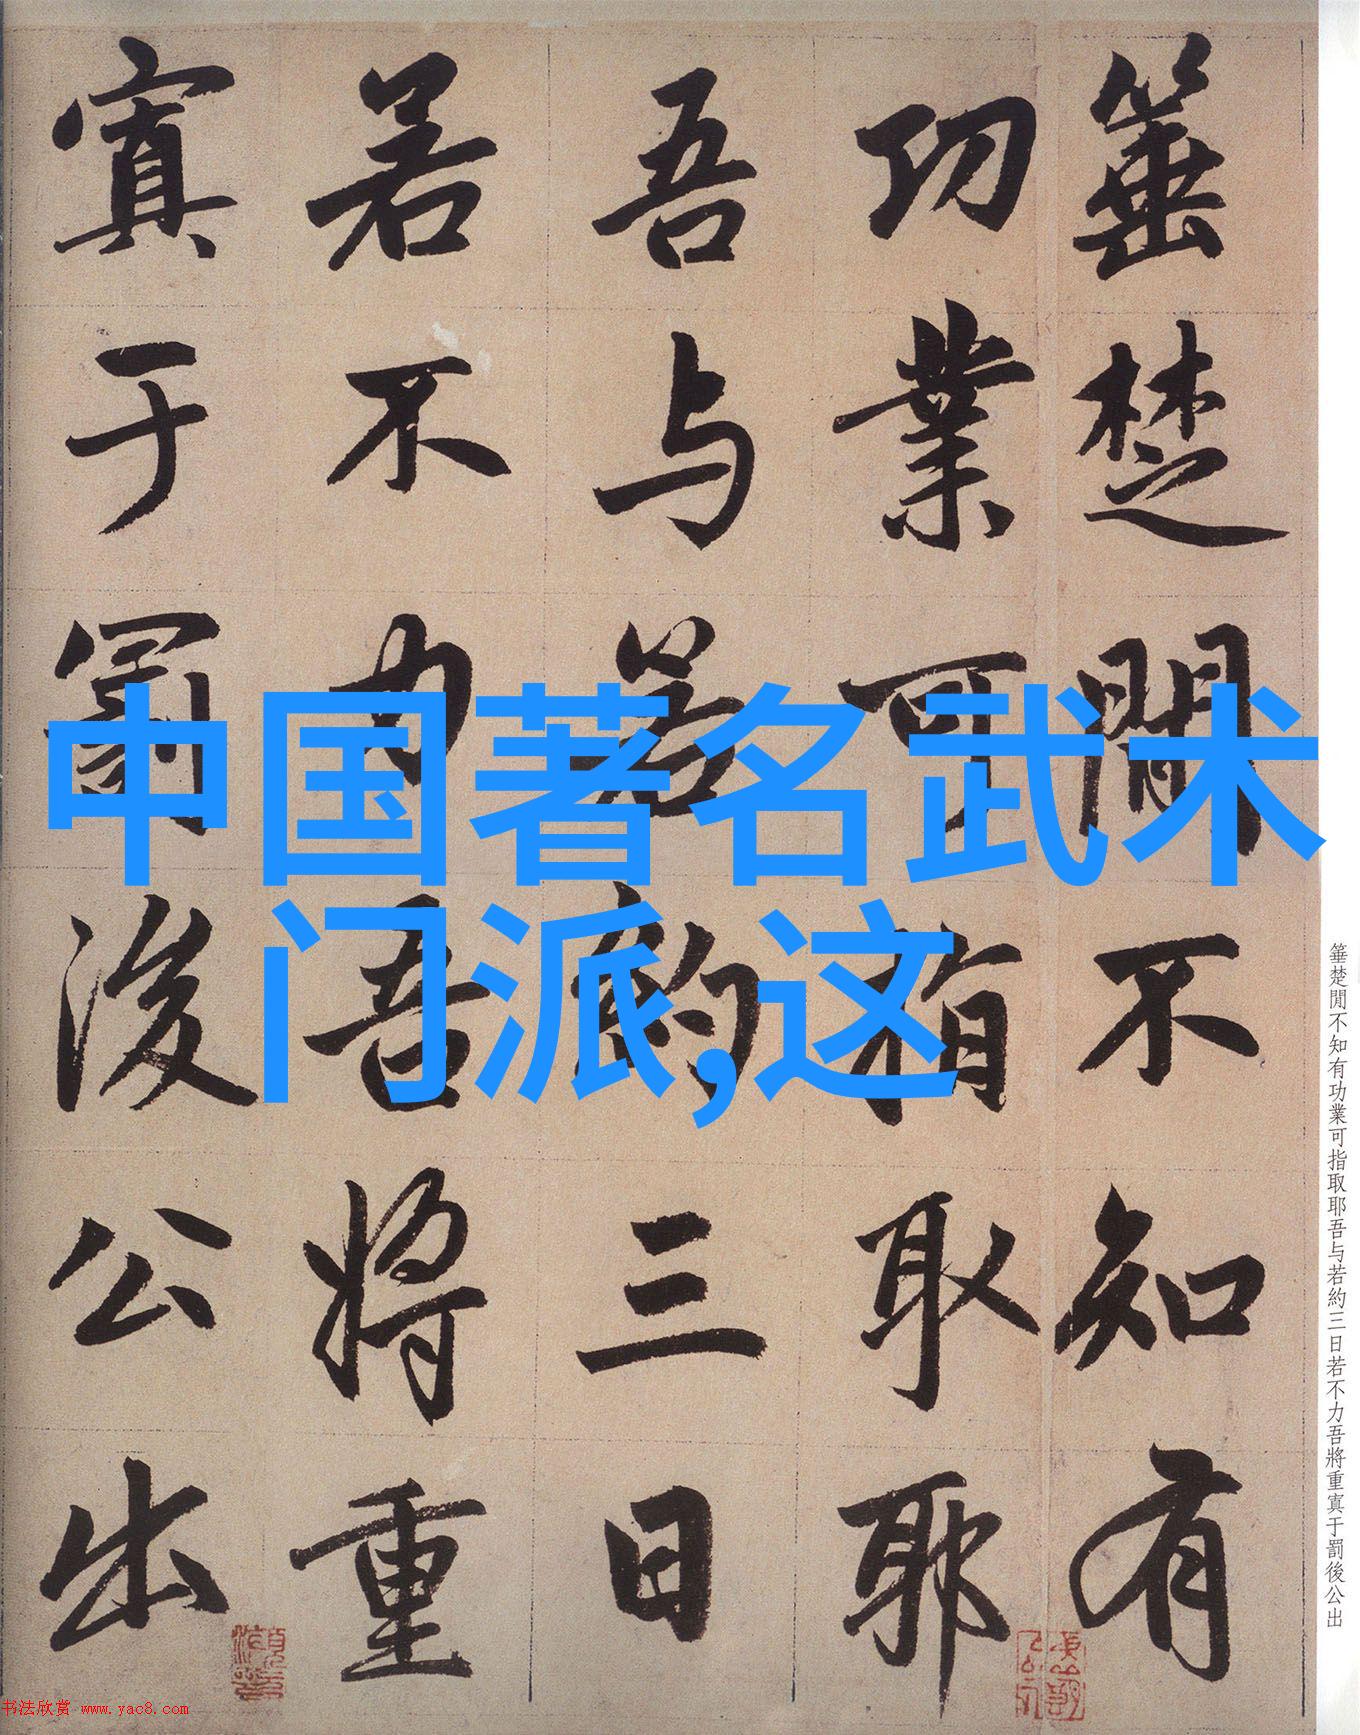 箠楚閒不知有
功業可指取耶
吾与若約三日
若不力吾將重
寘于罰後公出
中国著名武术
门派,这
箠楚閒不知有功業可指取耶吾与若約三日若不力吾將重寘于罰後公出
书法欣赏 www.yac8.com